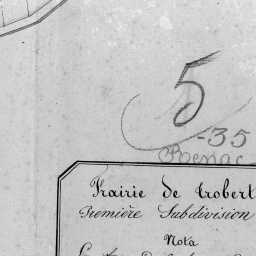 5
-35
Prairie de Trobert
Première Subdivision
Nota